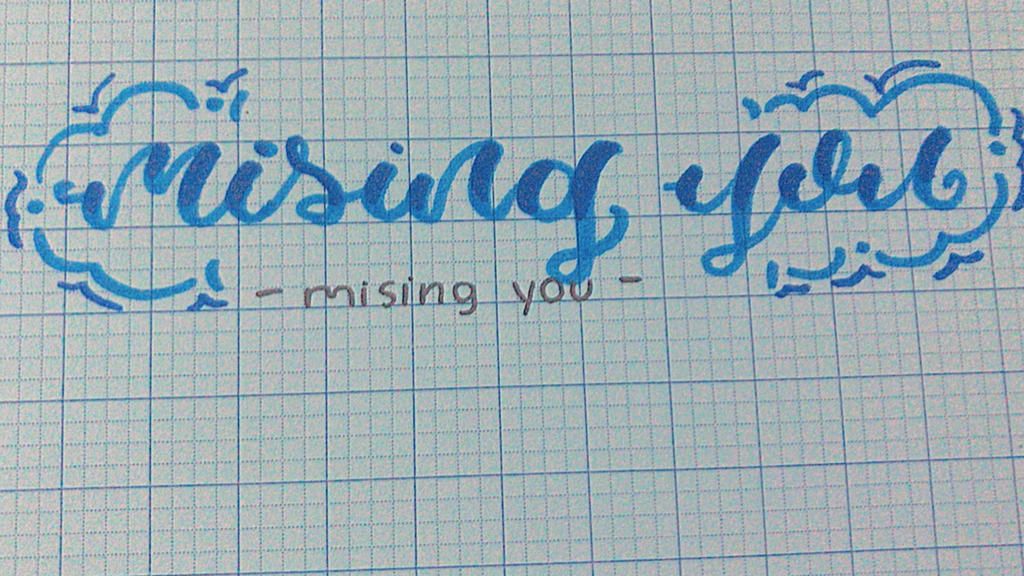 mising you
- mising you -